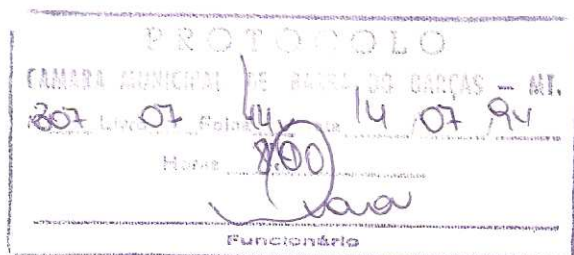 PROTOCOLO
CAMARA MUNICIPAL DE BARRA DO GARÇAS - MT.
307 Livro 07 Folha 44v 14 / 07 / 94
Horas 8:00
Funcionário